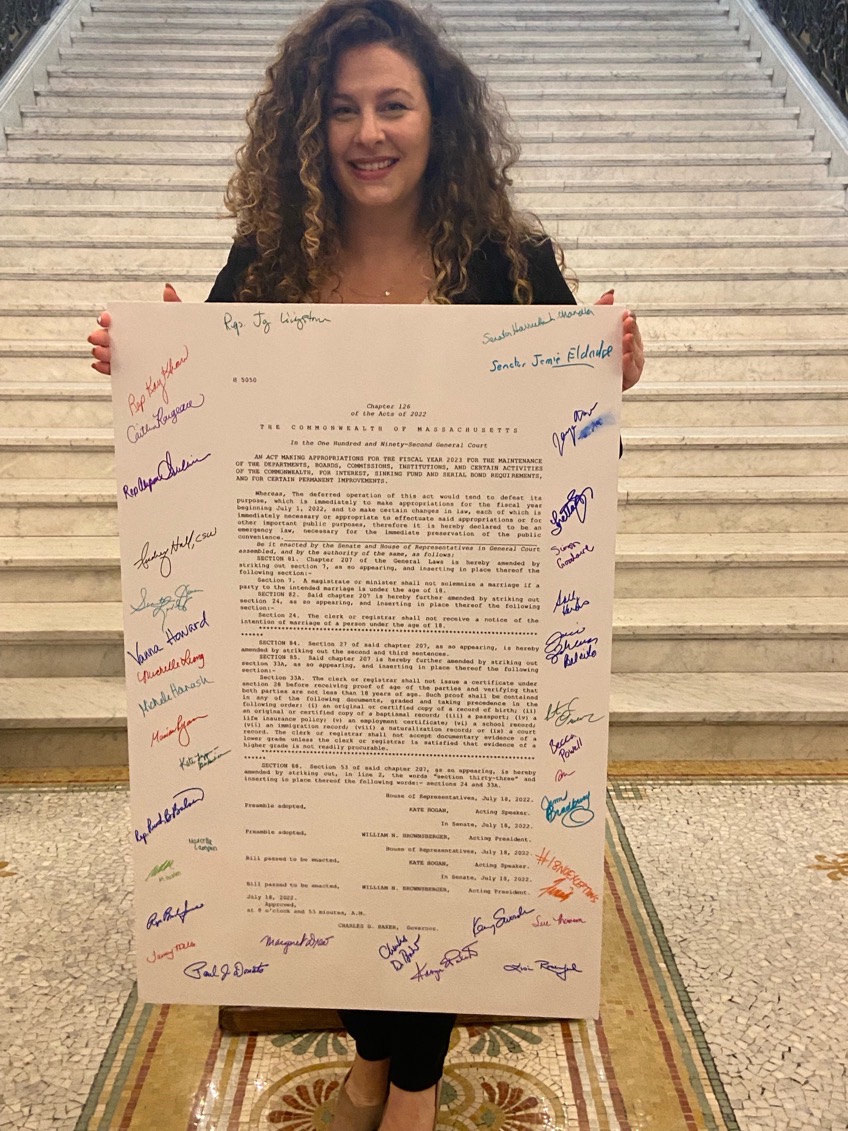 Rep. Jay Livingstone
Senator Harriette L. Chandler
Senator Jamie Eldridge
Rep Kay Khan
H 5050
Chapter 126
of the Acts of 2022
THE COMMONWEALTH OF MASSACHUSETTS
In the One Hundred and Ninety-Second General Court
AN ACT MAKING APPROPRIATIONS FOR THE FISCAL YEAR 2023 FOR THE MAINTENANCE
OF THE DEPARTMENTS, BOARDS, COMMISSIONS, INSTITUTIONS, AND CERTAIN ACTIVITIES
OF THE COMMONWEALTH, FOR INTEREST, SINKING FUND AND SERIAL BOND REQUIREMENTS,
AND FOR CERTAIN PERMANENT IMPROVEMENTS.
Whereas, The deferred operation of this act would tend to defeat its
purpose, which is immediately to make appropriations for the fiscal year
beginning July 1, 2022, and to make certain changes in law, each of which is
immediately necessary or appropriate to effectuate said appropriations or for
other important public purposes, therefore it is hereby declared to be an
emergency law, necessary for the immediate preservation of the public
convenience.
Be it enacted by the Senate and House of Representatives in General Court
assembled, and by the authority of the same, as follows:
SECTION 81. Chapter 207 of the General Laws is hereby amended by
striking out section 7, as so appearing, and inserting in place thereof the
following section:-
Section 7. A magistrate or minister shall not solemnize a marriage if a
party to the intended marriage is under the age of 18.
SECTION 82. Said chapter 207 is hereby further amended by striking out
section 24, as so appearing, and inserting in place thereof the following
section:-
Section 24. The clerk or registrar shall not receive a notice of the
intention of marriage of a person under the age of 18.
SECTION 84. Section 27 of said chapter 207, as so appearing, is hereby
amended by striking out the second and third sentences.
SECTION 85. Said chapter 207 is hereby further amended by striking out
section 33A, as so appearing, and inserting in place thereof the following
section:-
Section 33A. The clerk or registrar shall not issue a certificate under
section 28 before receiving proof of age of the parties and verifying that
both parties are not less than 18 years of age. Such proof shall be contained
in any of the following documents, graded and taking precedence in the
following order: (i) an original or certified copy of a record of birth; (ii)
an original or certified copy of a baptismal record; (iii) a passport; (iv) a
life insurance policy; (v) an employment certificate; (vi) a school record;
(vii) an immigration record; (viii) a naturalization record; or (ix) a court
record. The clerk or registrar shall not accept documentary evidence of a
lower grade unless the clerk or registrar is satisfied that evidence of a
higher grade is not readily procurable.
SECTION 86. Section 53 of said chapter 207, as so appearing, is hereby
amended by striking out, in line 2, the words "section thirty-three" and
inserting in place thereof the following words:- sections 24 and 33A.
House of Representatives, July 18, 2022.
Preamble adopted,
KATE HOGAN, Acting Speaker.
In Senate, July 18, 2022.
Preamble adopted,
WILLIAM N. BROWNSBERGER, Acting President.
House of Representatives, July 18, 2022.
Bill passed to be enacted,
KATE HOGAN, Acting Speaker.
In Senate, July 18, 2022.
Bill passed to be enacted,
WILLIAM N. BROWNSBERGER, Acting President.
July 18, 2022.
Approved,
at 8 o'clock and 53 minutes, A.M.
CHARLES D. BAKER, Governor.
Audrey Hall, CSW
Vanna Howard
Michelle
Sally
Becca
Powell
Jenn
Bradbury
#18NOEXCEPTIONS
Sue
Margaret Drew
Charles
D. Baker
Paul J. Donato